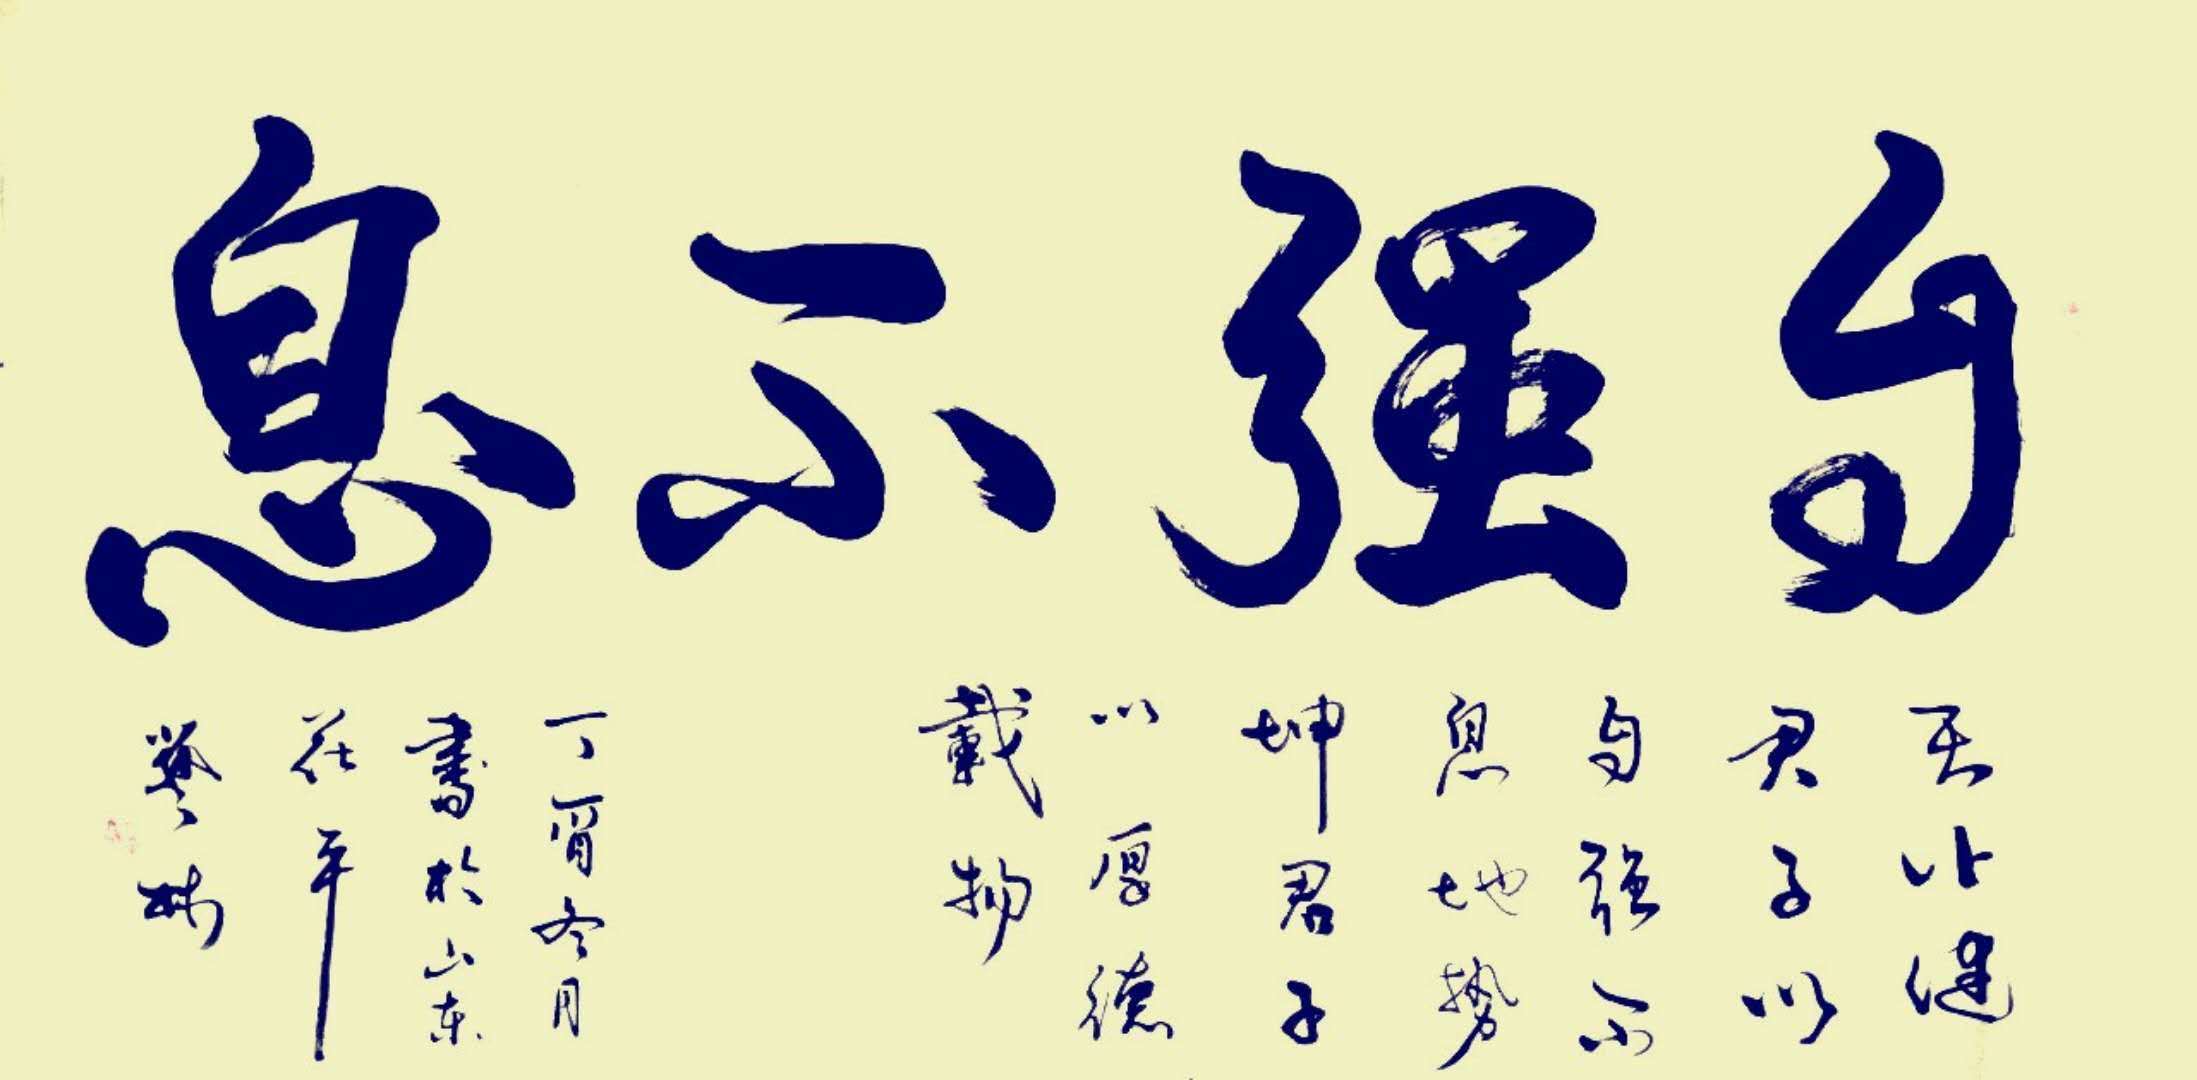 自强不息
天行健
君子以
自强不
息地势
坤君子
以厚德
载物
丁酉冬月
書於山东
茌平
艺林